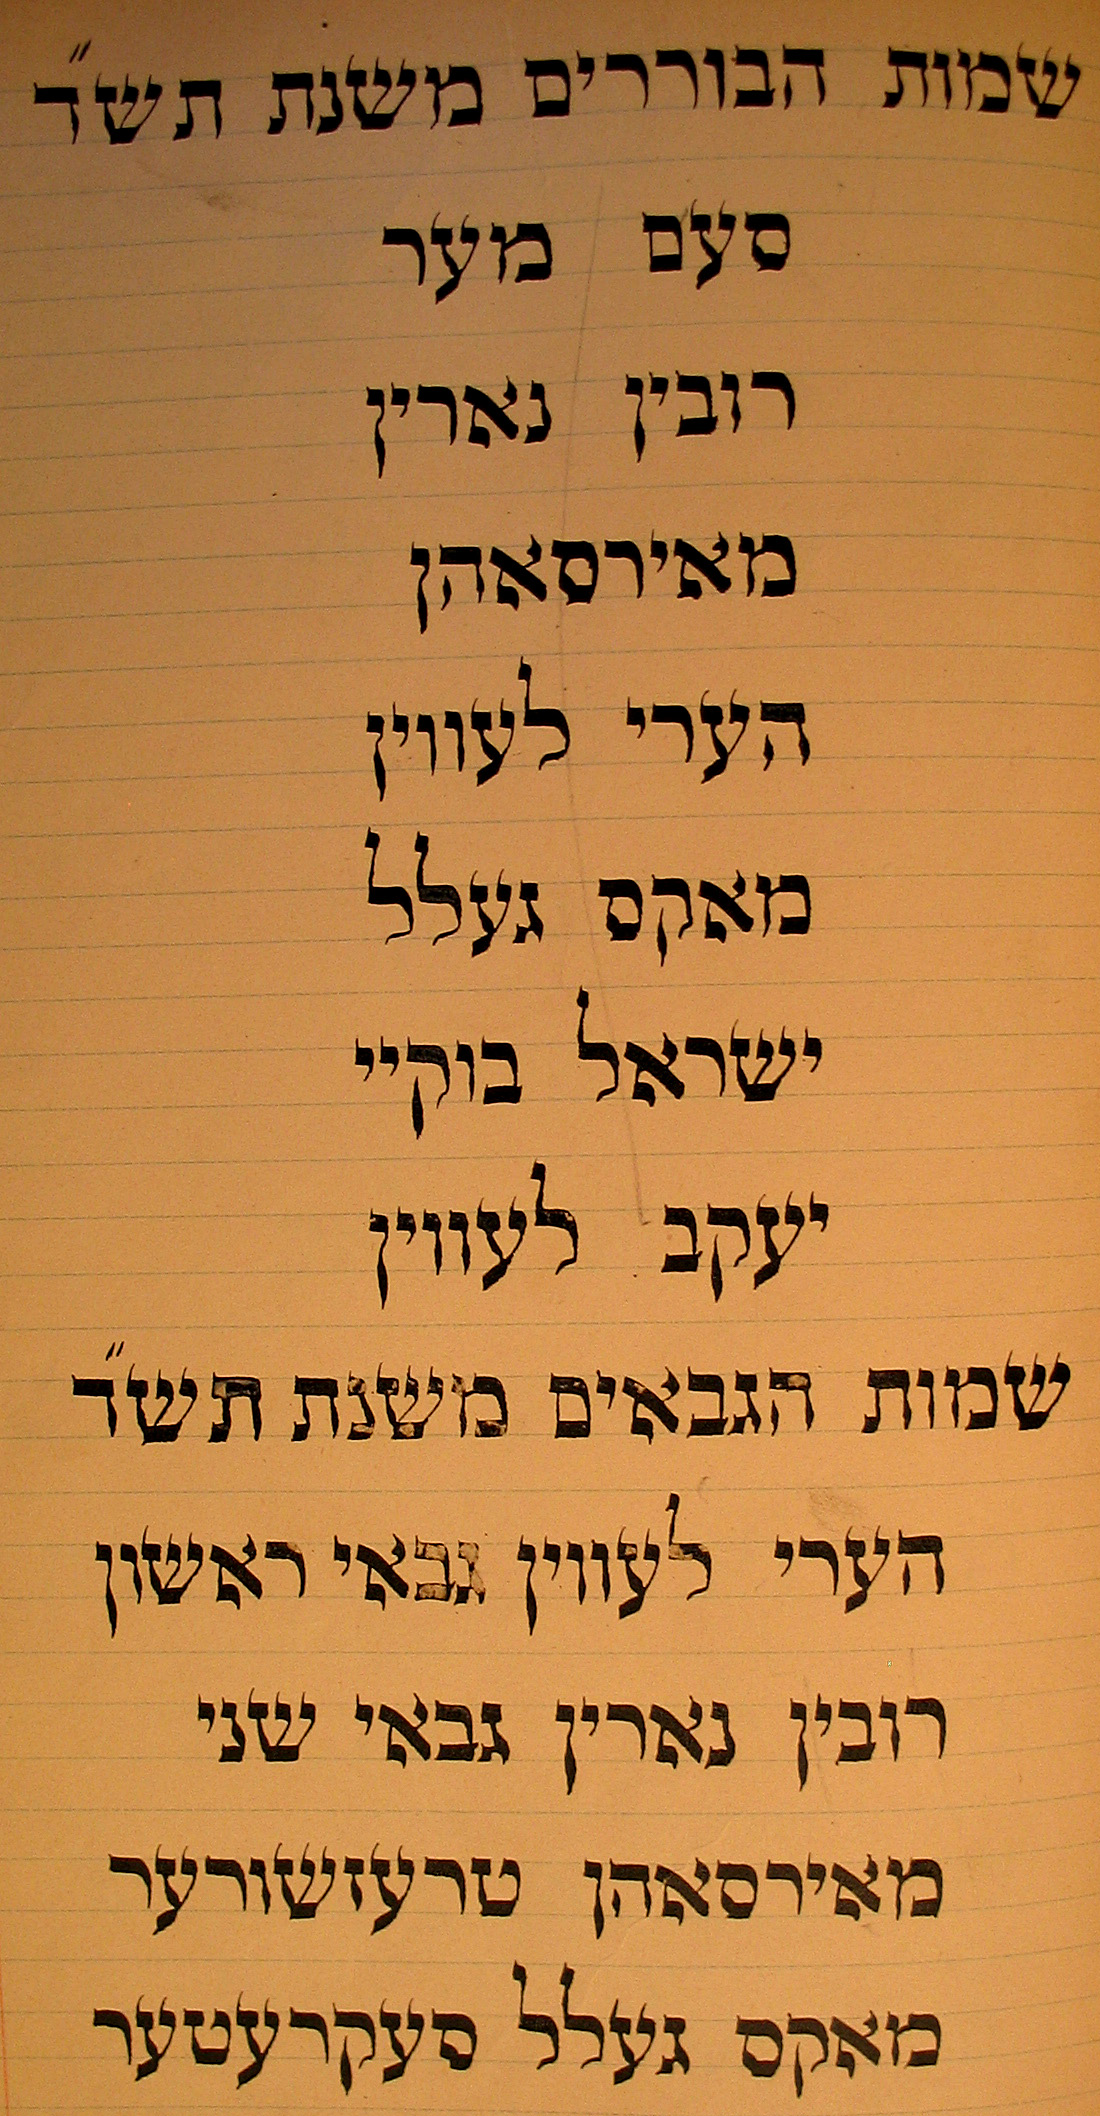 שמות הבוררים משנת תש״ד
סעם מער
רובין נארין
מאירסאהן
הערי לעווין
מאקס געלל
ישראל בוקיי
יעקב לעווין
שמות הגבאים משנת תש״ד
הערי לעווין גבאי ראשון
רובין נארין גבאי שני
מאירסאהן טרעזשורער
מאקס געלל סעקרעטער